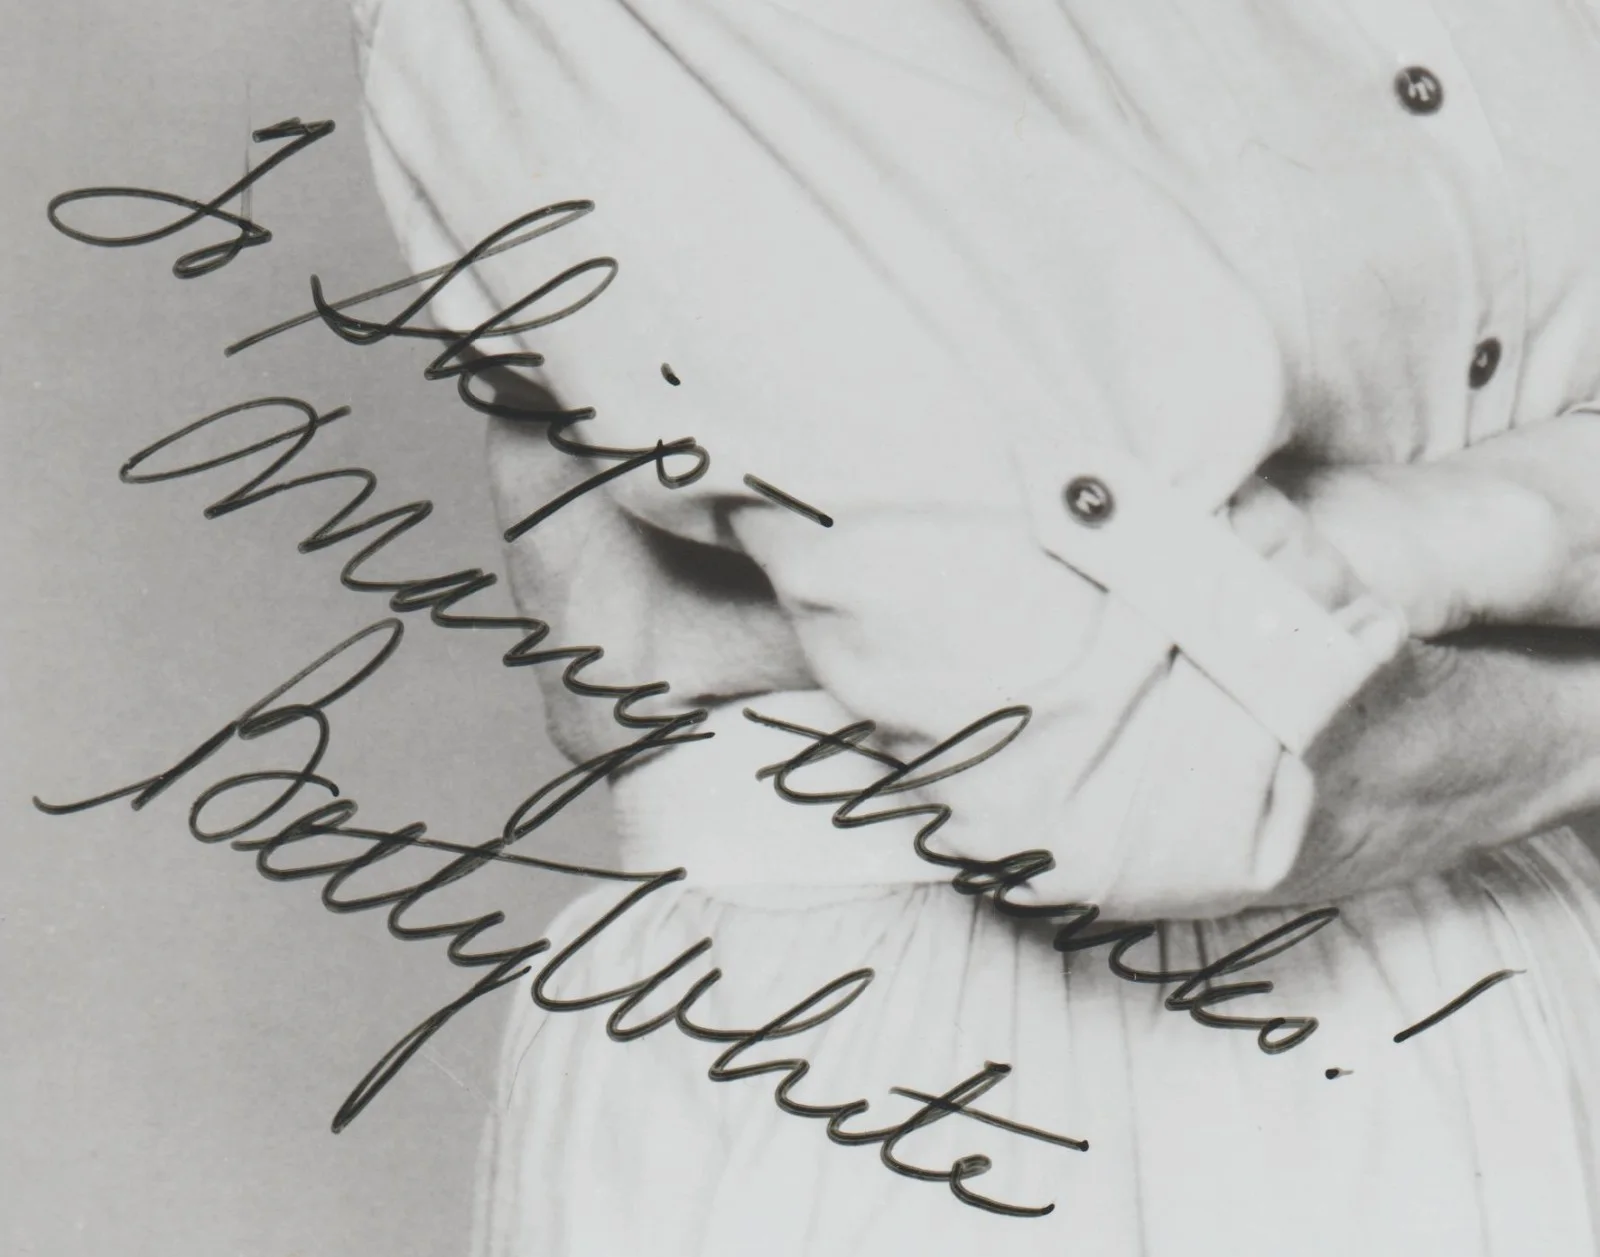 To Skip -
Many thanks!
Betty White